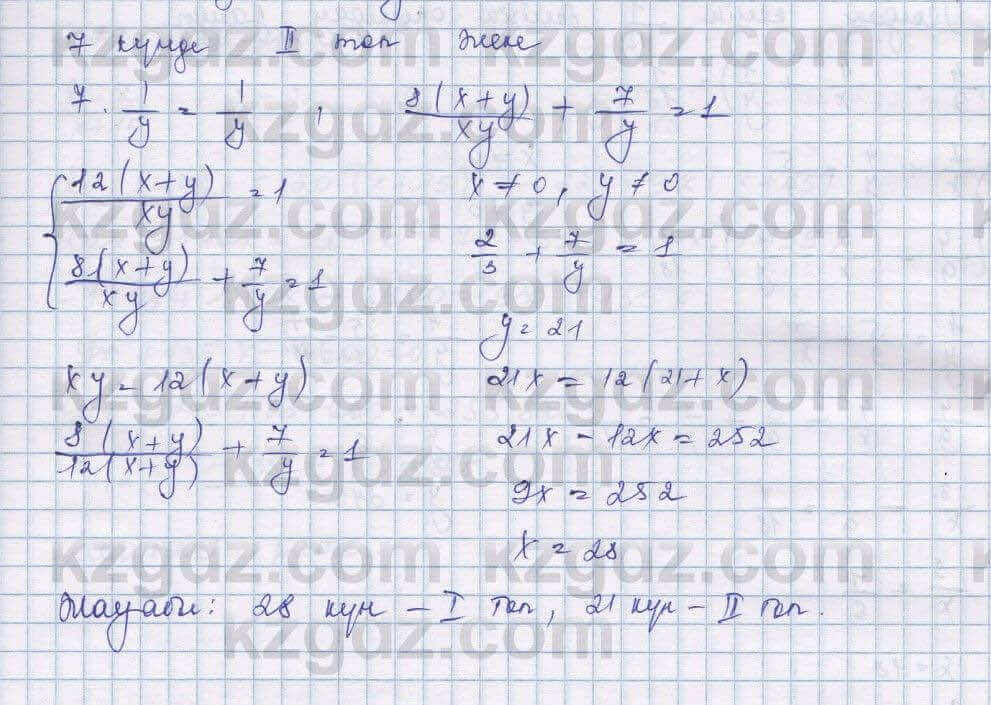 7 күнде II топ жеке
7 · 1/y = 1/y , 8(x+y)/xy + 7/y = 1
{ 12(x+y)/xy = 1
8(x+y)/xy + 7/y = 1
xy = 12(x+y)
8(x+y)/12(x+y) + 7/y = 1
x ≠ 0, y ≠ 0
2/3 + 7/y = 1
y = 21
21x = 12(21+x)
21x - 12x = 252
9x = 252
x = 28
Жауабы: 28 күн – I топ, 21 күн – II топ.
kzgdz.com